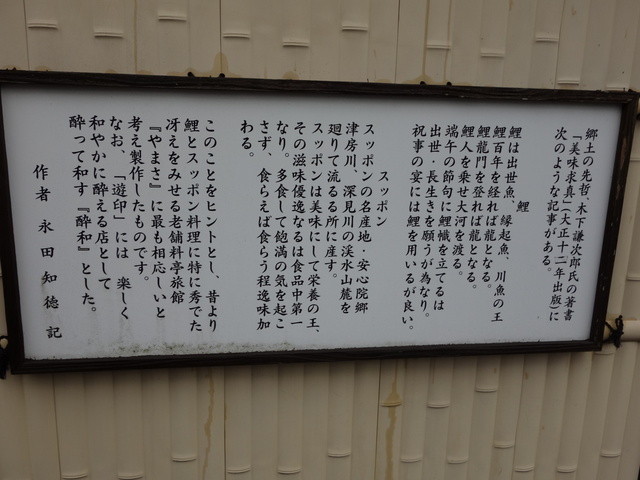 郷土の先哲、木下謙次郎氏の著書
「美味求真」(大正十二年出版)に
次のような記事がある。
鯉
鯉は出世魚、縁起魚、川魚の王
鯉百年を経れば龍となる。
鯉龍門を登れば龍となる。
鯉人を乗せ大河を渡る。
端午の節句に鯉幟を立てるは
出世・長生きを願うが為なり。
祝事の宴には鯉を用いるが良い。
スッポン
スッポンの名産地・安心院郷
津房川、深見川の渓水山麓を
廻りて流るる所に産す。
スッポンは美味にして栄養の王、
その滋味優逸なるは食品中第一
なり。多食して飽満の気を起こ
さず、食らえば食らう程逸味加
わる。
このことをヒントとし、昔より
鯉とスッポン料理に特に秀でた
冴えをみせる老舗料亭旅館
『やまさ』に最も相応しいと
考え製作したものです。
なお、「遊印」には 楽しく
和やかに酔える店として
酔って和す『酔和』とした。
作者 永田知徳 記